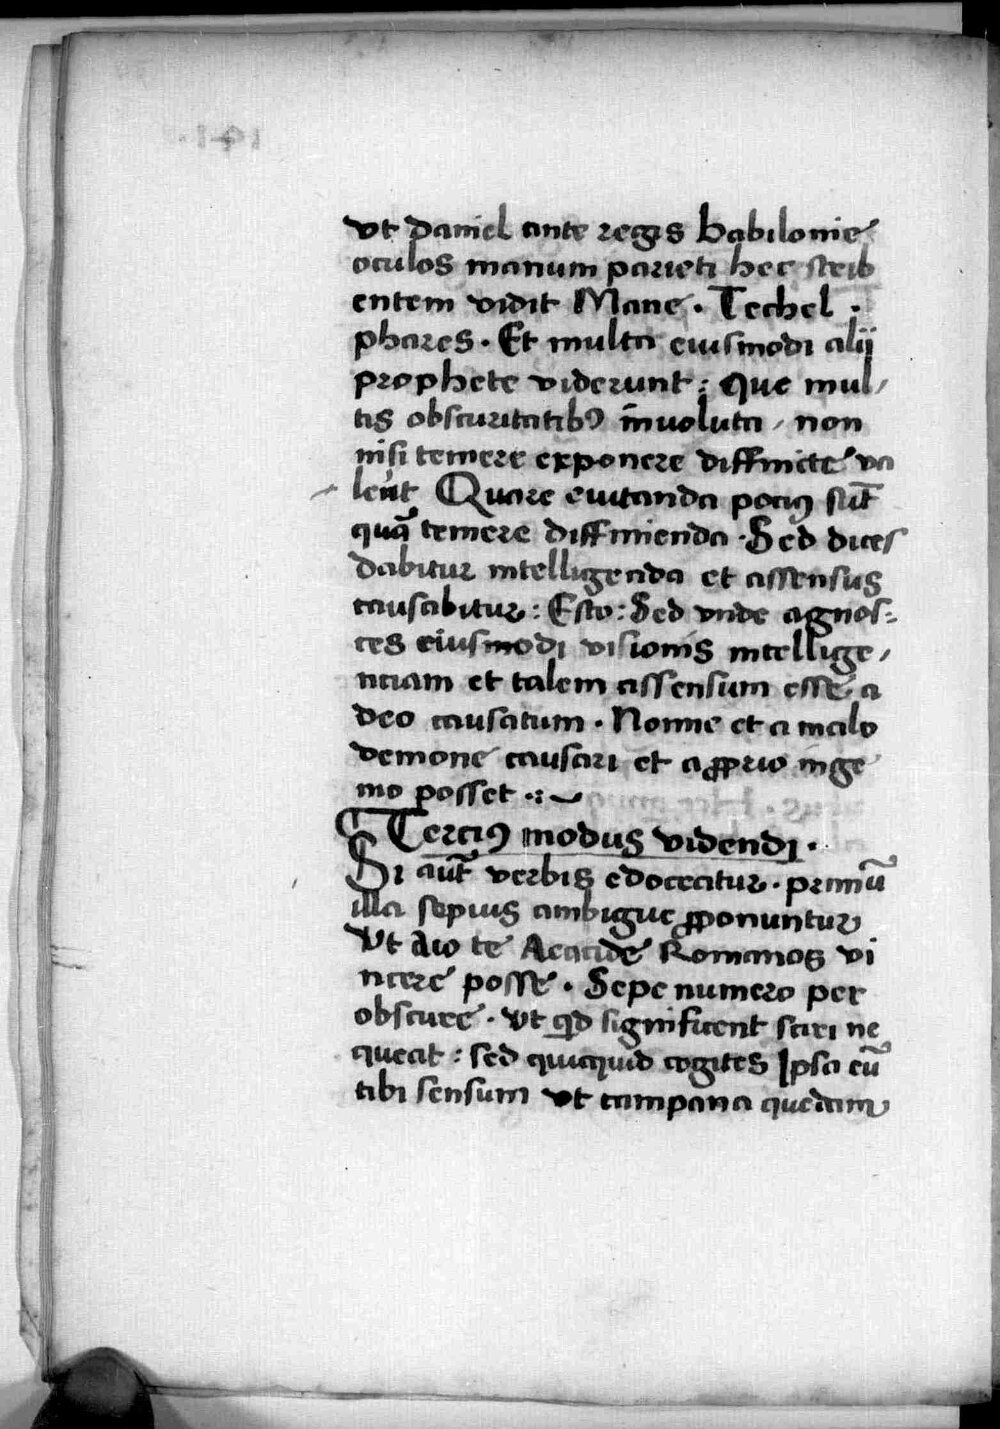 vt Daniel ante regis babilonie
oculos manum parieti hec scrib
entem vidit Mane . Techel .
phares . Et multa eiusmodi alij
prophete viderunt : Que mul/
tis obscuritatibꝰ inuoluta / non
nisi temere exponere diffinite va
lent̄ Quare euitanda pociꝰ sūt
quā temere diffinienda . Sed dices
dabitur intelligenda et assensus
causabitur : Esto : Sed vnde agnos=
ces eiusmodi visionis intellige/
nciam et talem assensum esse a
deo causatum . Nonne et a malo
demone causari et a ꝓprio inge
nio posset .:
Terciꝰ modus videndi .
Si aut̄ verbis edoceatur . primū
illa sepius ambigue ꝓponuntur
Vt Aio te Aeacide Romanos vi
ncere posse . Sepe numero per
obscure . Vt qd significent sciri ne
queat : sed quicquid cogites Ipsa eū
tibi sensum vt campana quedam